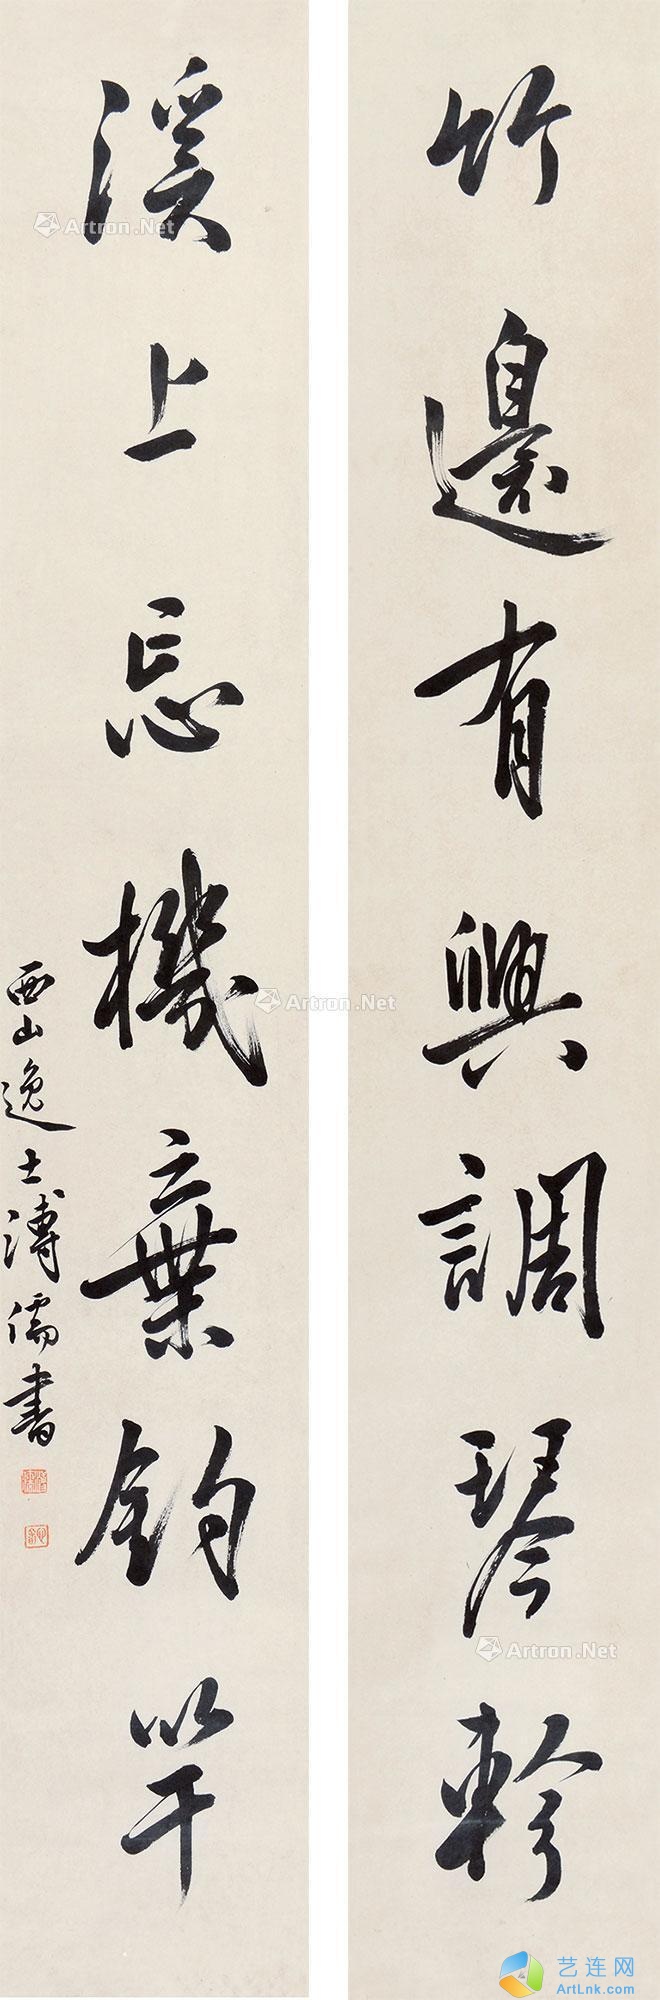 竹邊有興調琴軫
溪上忘機棄釣竿
西山逸士溥儒書
Artron.Net
Artron.Net
Artron.Net
艺连网
ArtLnk.com